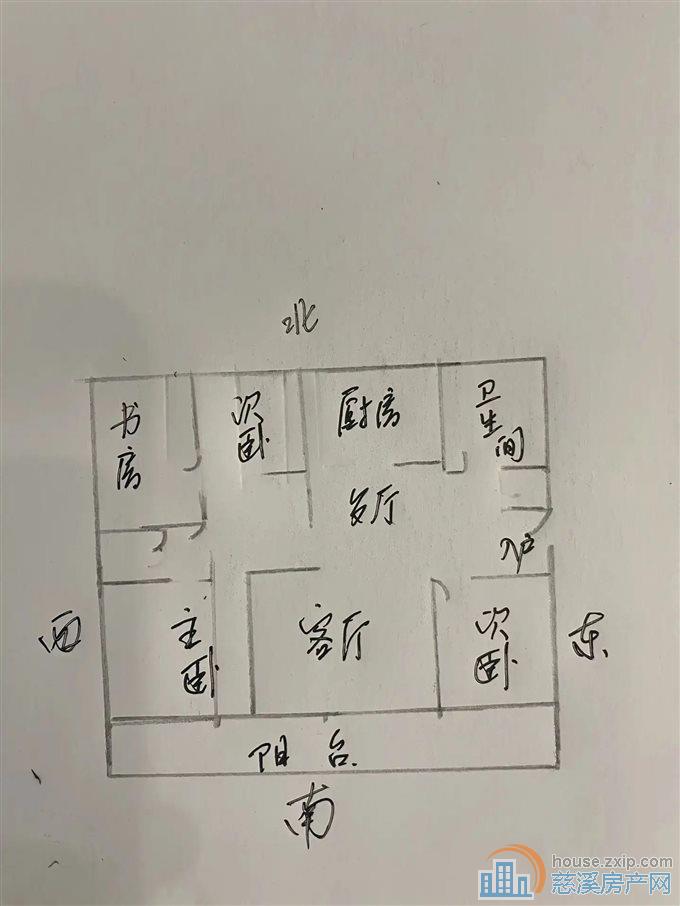 北
书房
次卧
厨房
卫生间
餐厅
入户
西
主卧
客厅
次卧
东
阳台
南
house.zxip.com
慈溪房产网